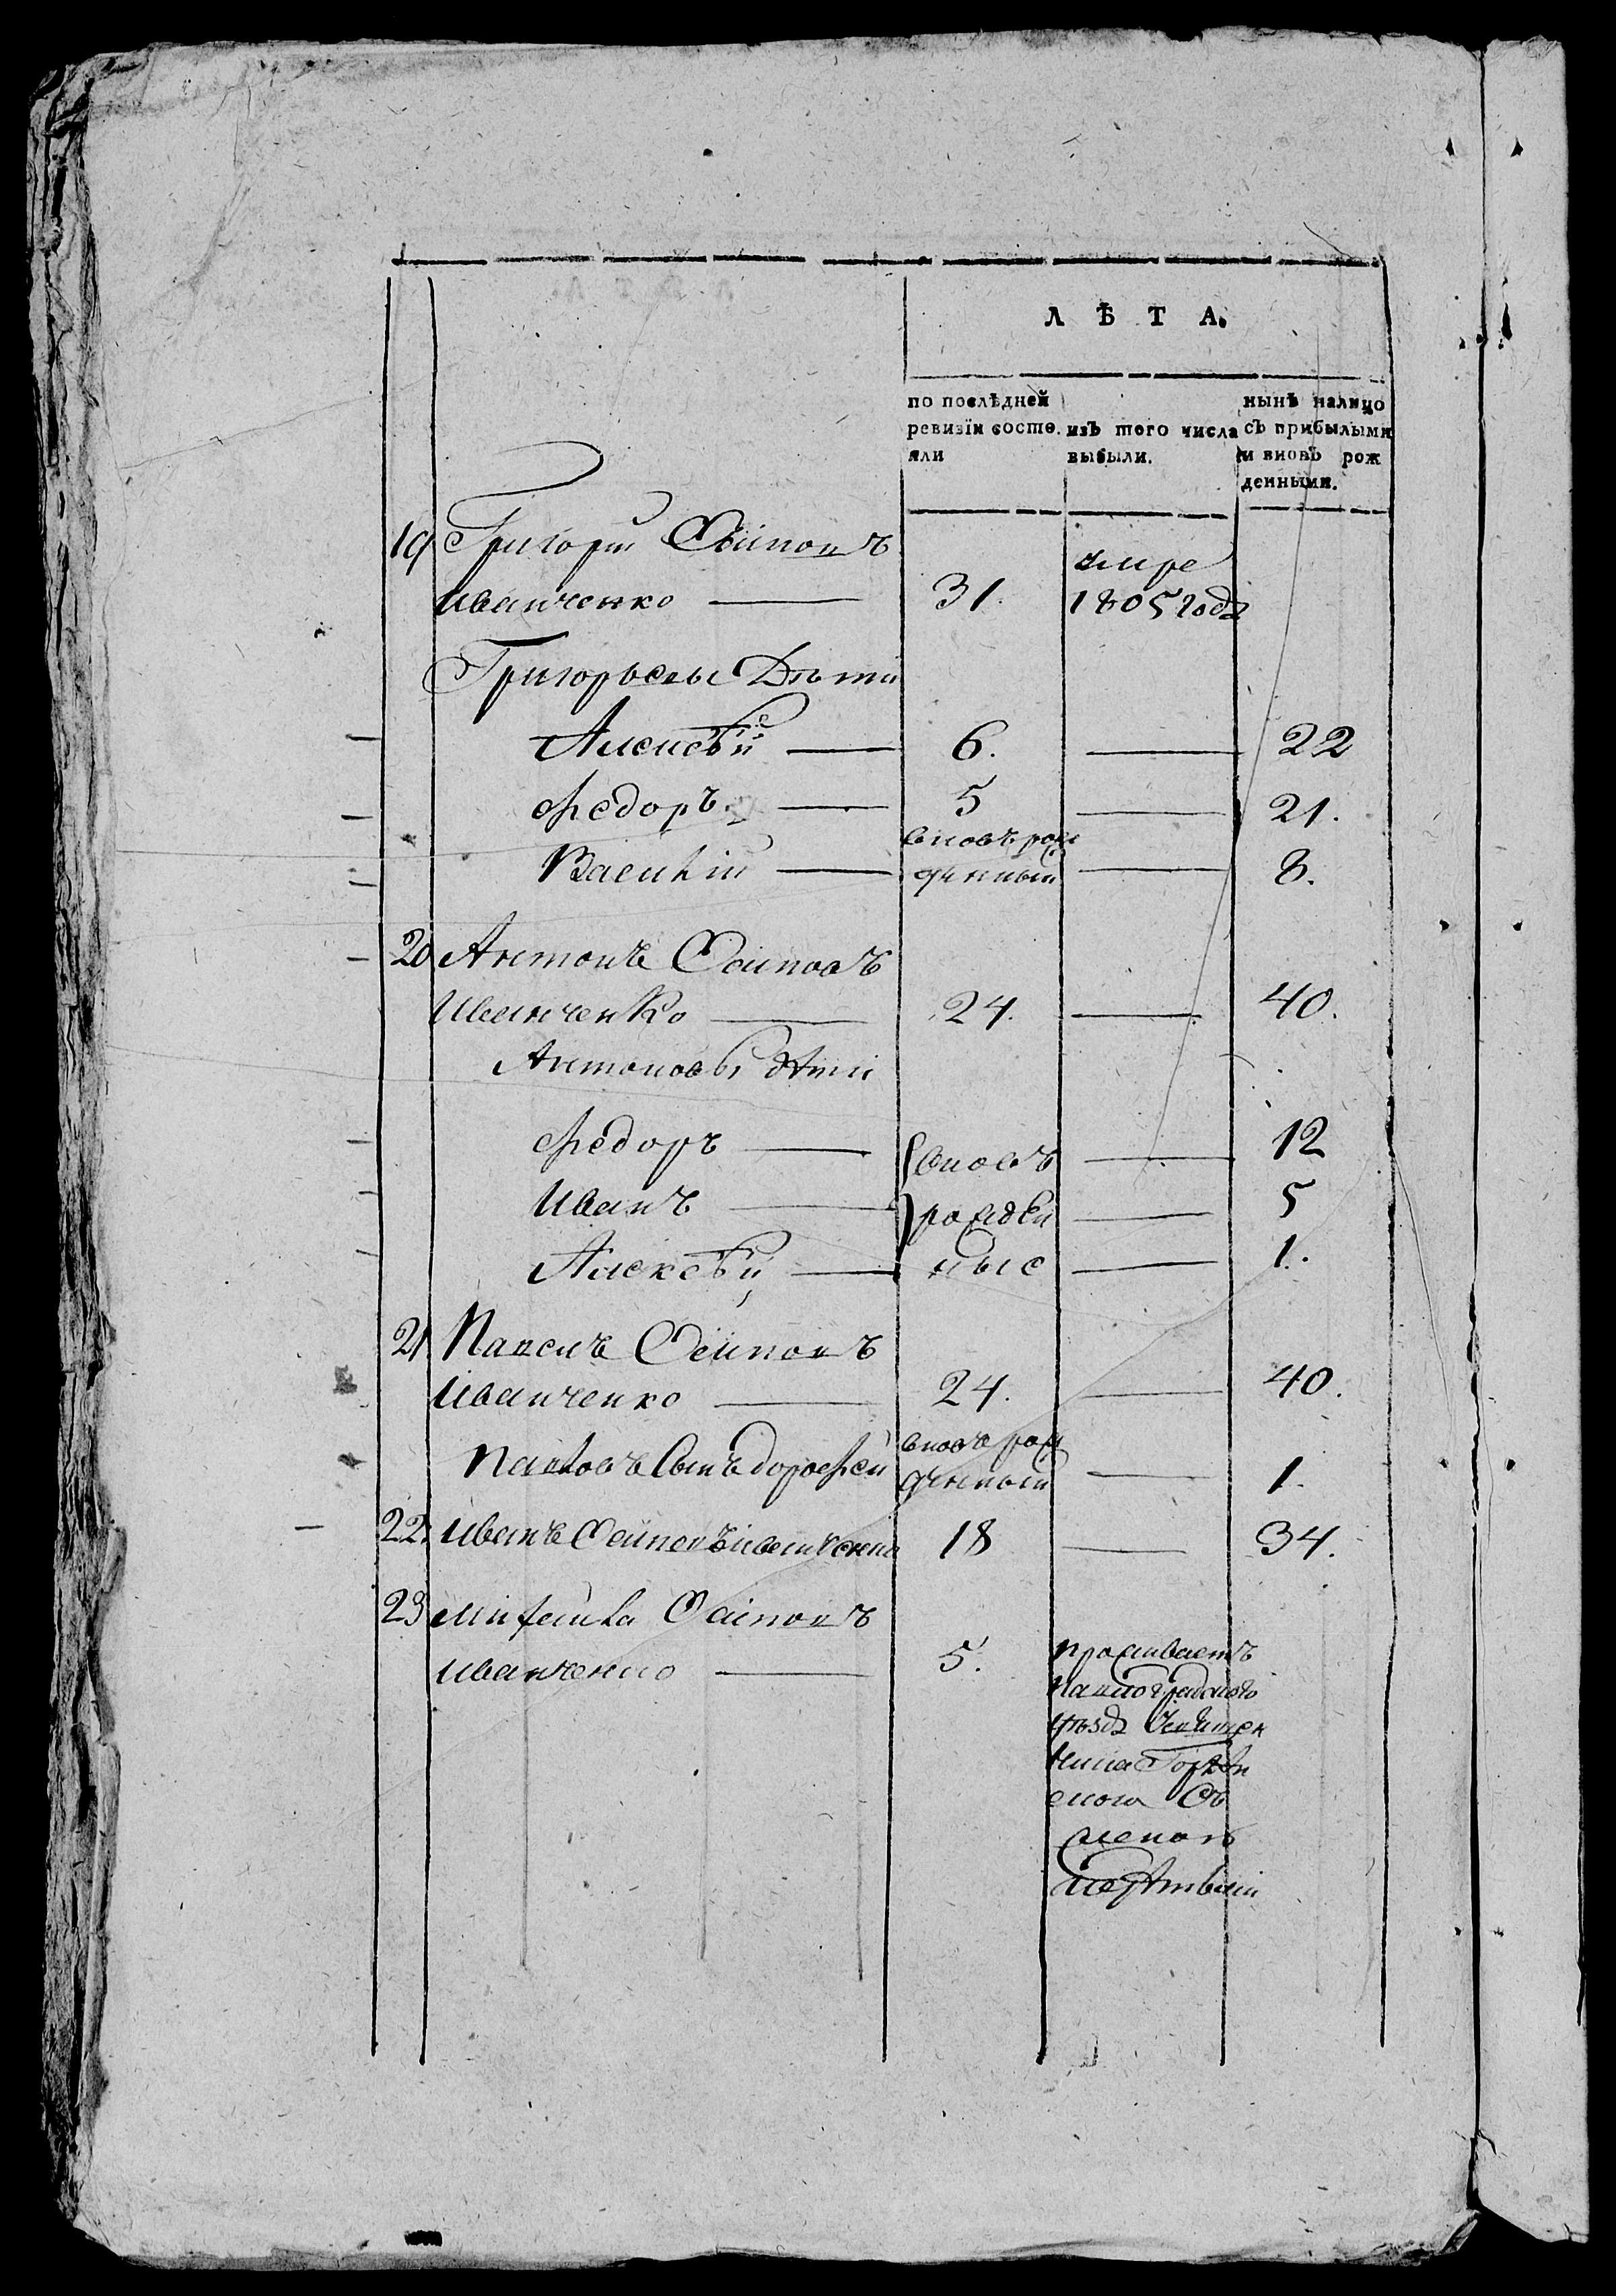 ЛѢТА.
по послѣдней ревизіи состояли
изъ того числа выбыли.
нынѣ налицо съ прибылыми и вновь рожденными.
19 Григорій Осиповъ
Иванченко — 31. умре 1805 года
Григорьевы Дѣти
Алексѣй — 6. — 22
Федоръ — 5 — 21.
Василій — вновь рожденный — 8.
20 Антонъ Осиповъ
Иванченко — 24. — 40.
Антоновы дѣти
Федоръ — вновь — 12
Иванъ — рожден — 5
Алексѣй — ные — 1.
21 Павелъ Осиповъ
Иванченко — 24. — 40.
Павловъ Сынъ дорофей вновь рожденный — 1.
22. Иванъ Осиповъ иванченко 18 — 34.
23 михайла Осиповъ
иванченко — 5. проживаетъ
Павлоградского
уѣзда